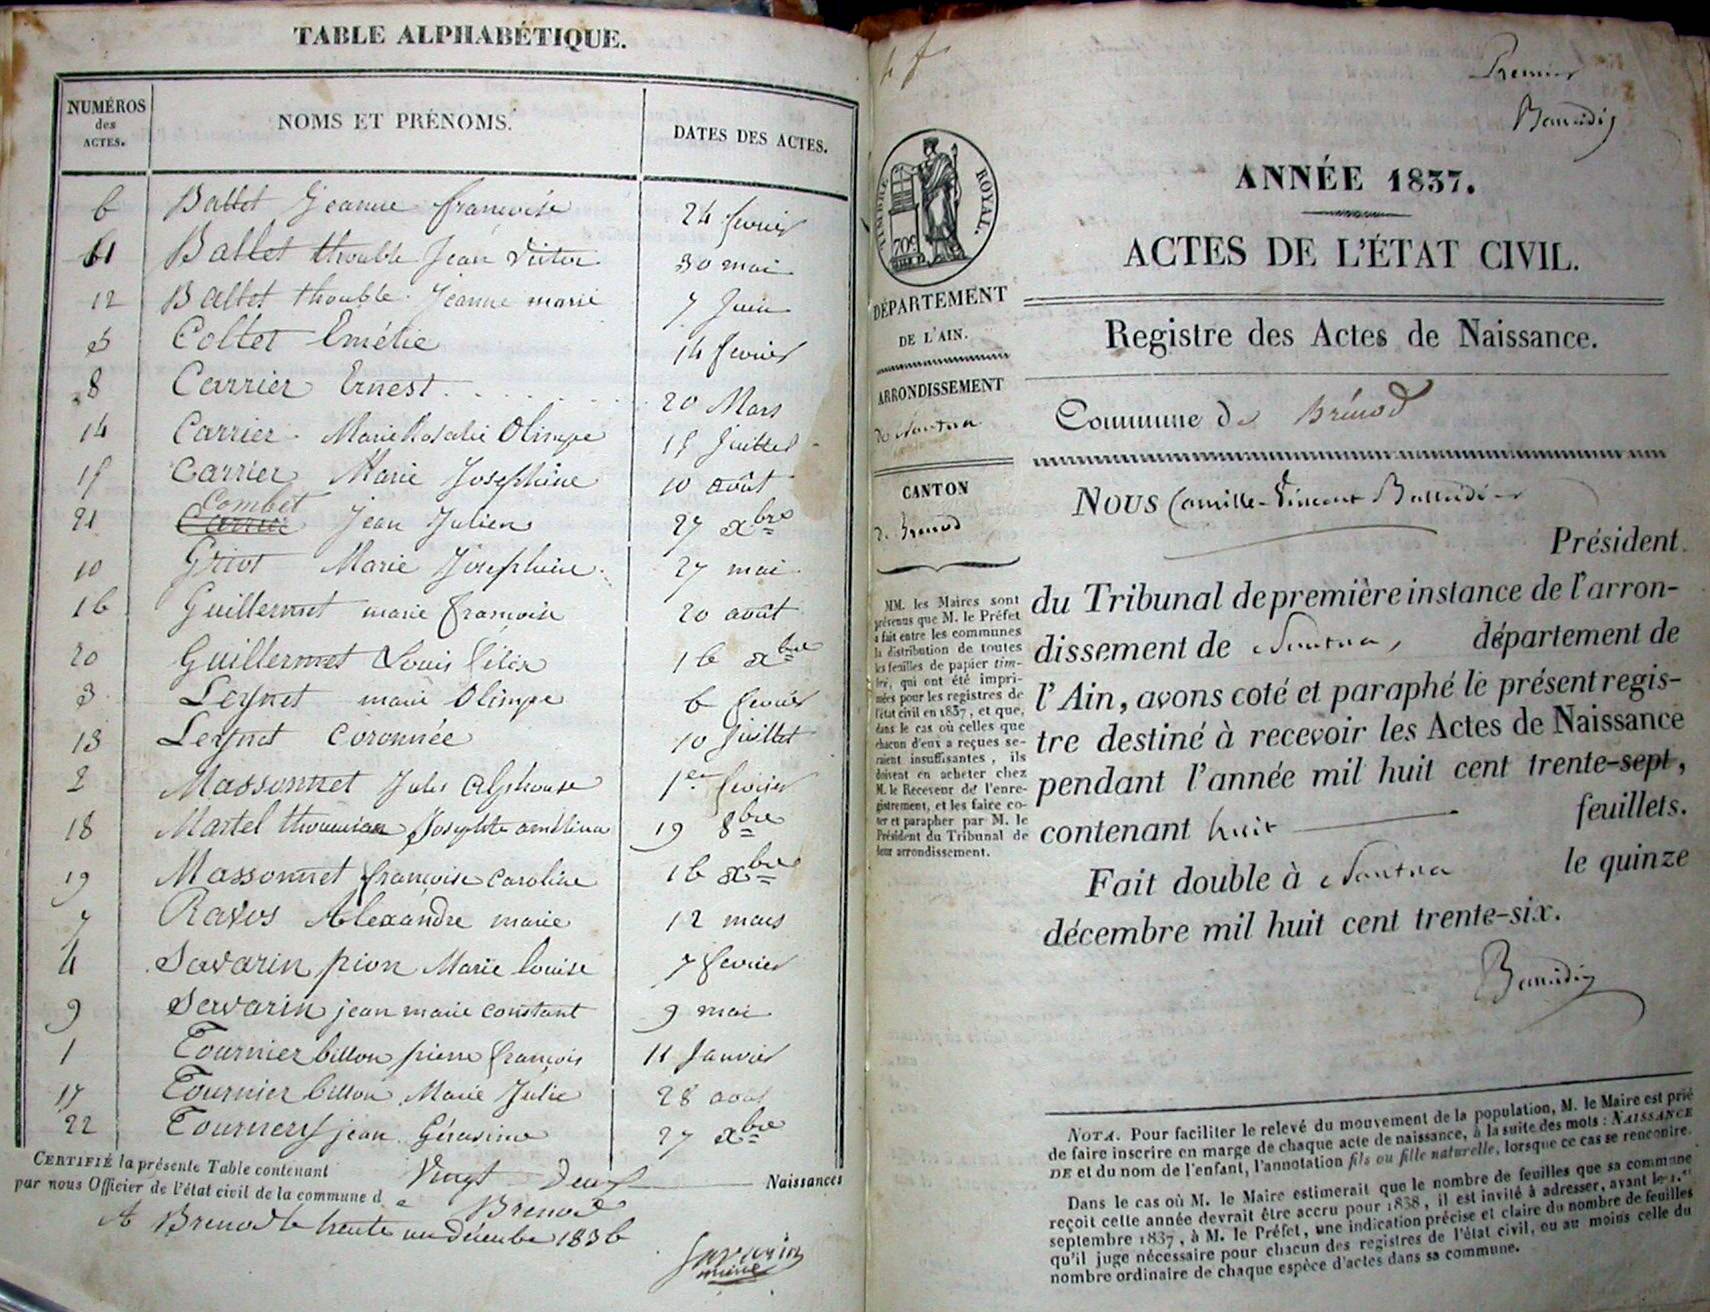 TABLE ALPHABÉTIQUE.
NUMÉROS des ACTES. NOMS ET PRÉNOMS. DATES DES ACTES.
6 Ballet Jeanne françoise 24 fevrier
11 Ballet thouble Jean Victor 30 mai
12 Ballet thouble Jeanne marie 7 Juin
5 Collet Emélie 14 fevrier
8 Carrier Ernest 20 Mars
14 Carrier Marie Rosalie Olimpe 15 Juillet
15 Carrier Marie Josephine 10 août
Combet
21 Carrier Jean Julien 27 xbre
10 Griot Marie Josephine 27 mai
16 Guillermet marie françoise 20 août
20 Guillermet Louis félix 16 xbre
3 Leynet marie Olimpe 6 fevrier
13 Leynet Coronnée 10 Juillet
2 Massonnet Jules Alphonse 1er fevrier
18 Martel thomian Josephte amélina 19 8bre
19 Massonnet françoise Caroline 16 xbre
7 Ravos Alexandre marie 12 mars
4 Savarin pion Marie louise 7 fevrier
9 Savarin jean marie constant 9 mai
1 Tournier billon pierre françois 11 Janvier
17 Tournier billon Marie Julie 28 aout
22 Tournery jean Gérasime 27 xbre
CERTIFIÉ la présente Table contenant Vingt Deux Naissances
par nous Officier de l'état civil de la commune de Brenod
A Brenod le trente un décembre 1836
Savarin
maire
Premier
Baudin
TIMBRE ROYAL.
70c
DÉPARTEMENT
DE L'AIN.
ARRONDISSEMENT
de Nantua
CANTON
de Brenod
MM. les Maires sont
prévenus que M. le Préfet
a fait entre les communes
la distribution de toutes
les feuilles de papier tim-
bré, qui ont été impri-
mées pour les registres de
l'état civil en 1837, et que,
dans le cas où celles que
chacun d'eux a reçues se-
raient insuffisantes, ils
doivent en acheter chez
M. le Receveur de l'enre-
gistrement, et les faire co-
ter et parapher par M. le
Président du Tribunal de
leur arrondissement.
ANNÉE 1837.
ACTES DE L'ÉTAT CIVIL.
Registre des Actes de Naissance.
Commune de Brénod
NOUS Camille-Vincent
Président
du Tribunal de première instance de l'arron-
dissement de Nantua, département de
l'Ain, avons coté et paraphé le présent regis-
tre destiné à recevoir les Actes de Naissance
pendant l'année mil huit cent trente-sept,
contenant huit feuillets.
Fait double à Nantua le quinze
décembre mil huit cent trente-six.
NOTA. Pour faciliter le relevé du mouvement de la population, M. le Maire est prié
de faire inscrire en marge de chaque acte de naissance, à la suite des mots : NAISSANCE
DE et du nom de l'enfant, l'annotation fils ou fille naturelle, lorsque ce cas se rencontre.
Dans le cas où M. le Maire estimerait que le nombre de feuilles que sa commune
reçoit cette année devrait être accru pour 1838, il est invité à adresser, avant le 1.er
septembre 1837, à M. le Préfet, une indication précise et claire du nombre de feuilles
qu'il juge nécessaire pour chacun des registres de l'état civil, ou au moins celle du
nombre ordinaire de chaque espèce d'actes dans sa commune.